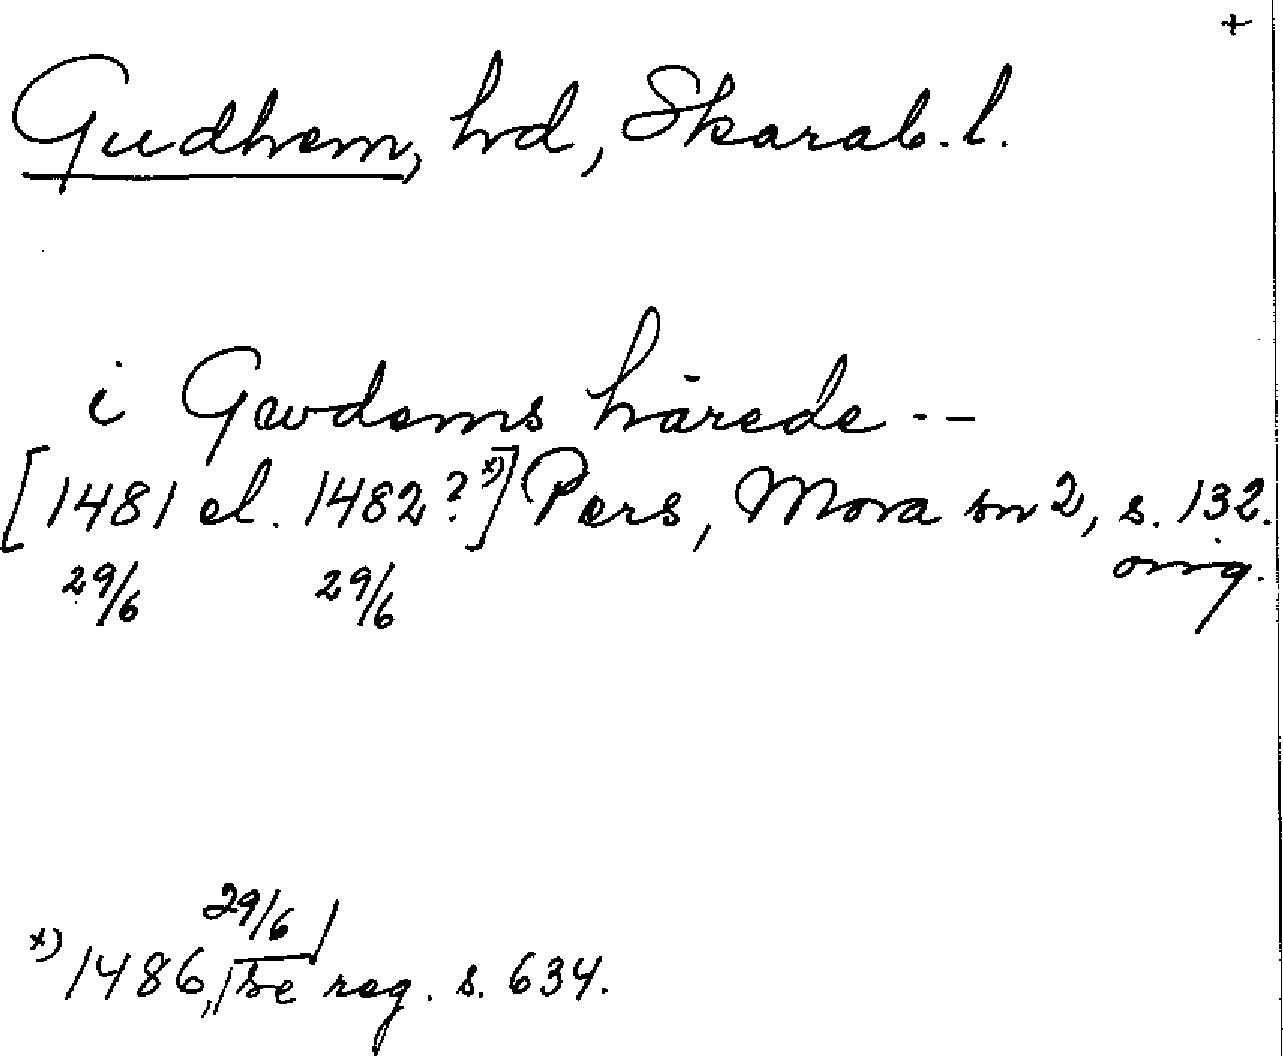 +
Gudhem, hd, Skarab. l.
i Gwdems härede --
[1481 el. 1482?x)] Pers, Mora sn 2, s. 132.
29/6 29/6 orig.
29/6
x) 1486, se reg. s. 634.